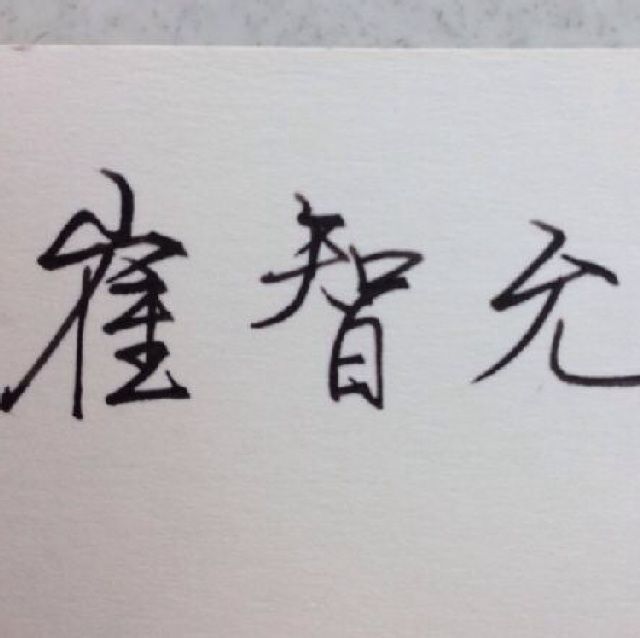 崔智允